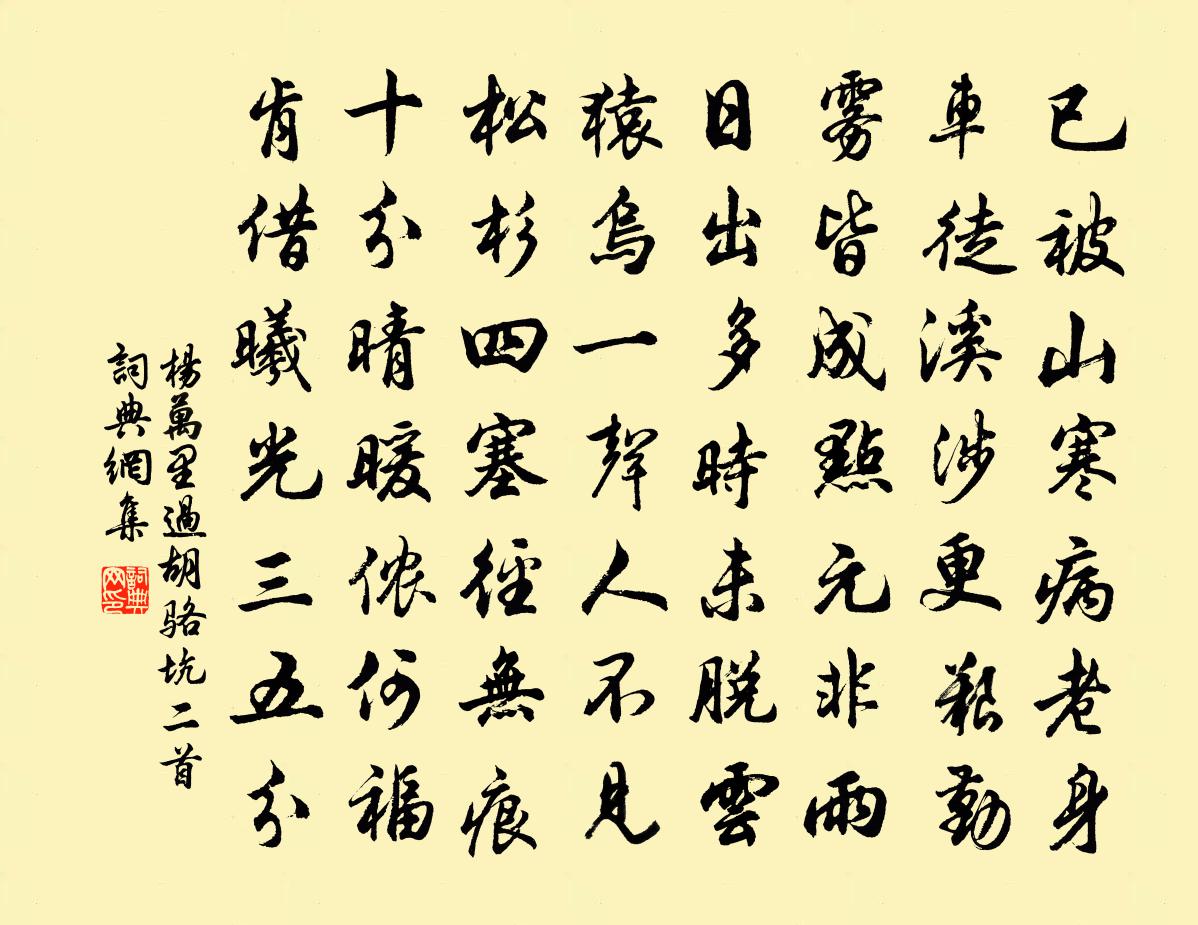 已被山寒病老身
車徒溪涉更艱勤
雾皆成點元非雨
日出多時未脫雲
猿鳥一聲人不見
松杉四塞徑無痕
十分晴暖侬何福
肯借曦光三五分
楊萬里過胡骆坑二首
詞典網集
詞典網印